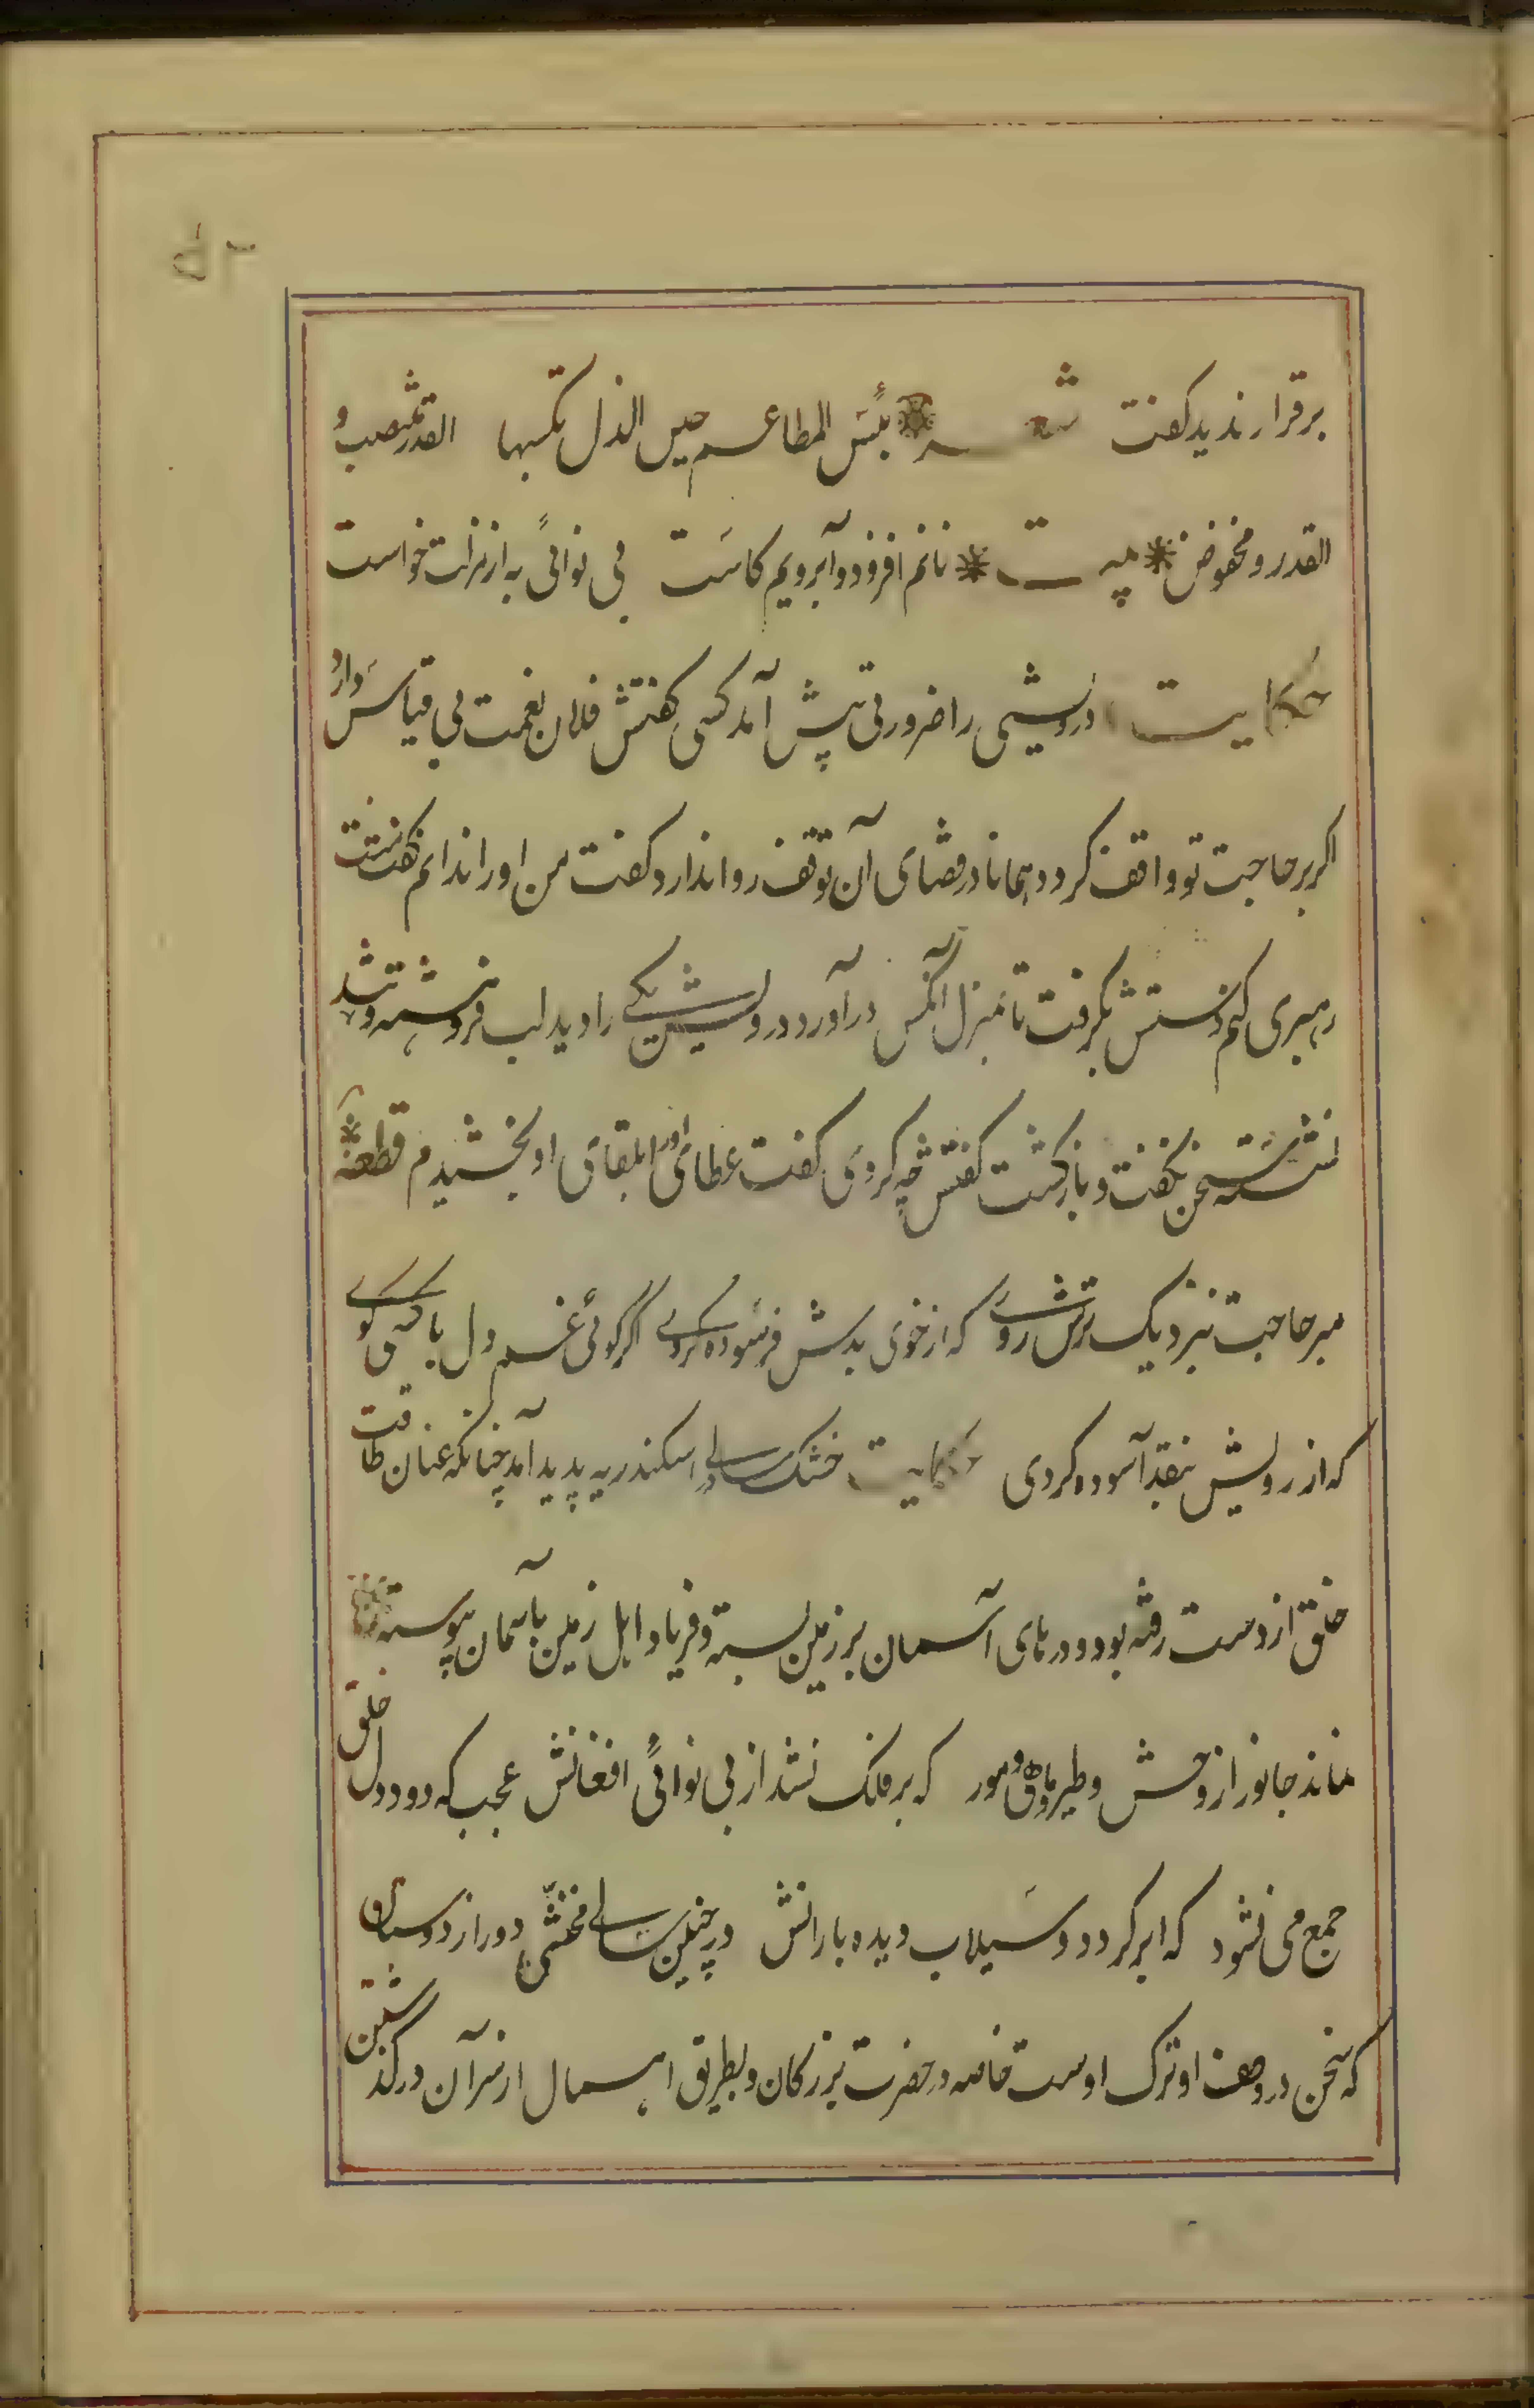 برقرار ندید کفت شعر بئس المطاعم حین الذل تکسبها القدر منتصب و
القدر و مخفوض بیت نانم افزود و آبرویم کاست بی نوائی به از مذلت خواست
حکایت درویشی را ضرورتی پیش آمد کسی کفتش فلان نعمت بی قیاس دارد
اکر بر حاجت تو واقف کردد همانا در قضای آن توقف روا ندارد کفت من او را ندانم کفت منت
رهبری کنم دستش بکرفت تا بمنزل آنکس درآورد درویش یکی را دید لب فروهشته و تند
نشسته سخن نکفت و بازکشت کفتش چه کردی کفت عطای او را بلقای او بخشیدم قطعه
مبر حاجت بنزدیک ترش روی که از خوی بدش فرسوده کردی اکر کوئی غم دل با کسی کوی
که از رویش بنقد آسوده کردی حکایت خشک سالی در اسکندریه پدید آمد چنانکه عنان طاقت
خلق از دست رفته بود و درهای آسمان بر زمین بسته و فریاد اهل زمین بآسمان پیوسته
نماند جانور از وحش و طیر و ماهی و مور که بر فلک نشد از بی نوائی افغانش عجب که دود دل خلق
جمع می نشود که ابر کردد و سیلاب دیده بارانش در چنین سالی مخنثی دور از دوستان
که سخن در وصف او ترک اوست خاصه در حضرت بزرکان و بطریق اهمال از سر آن درکذشتن